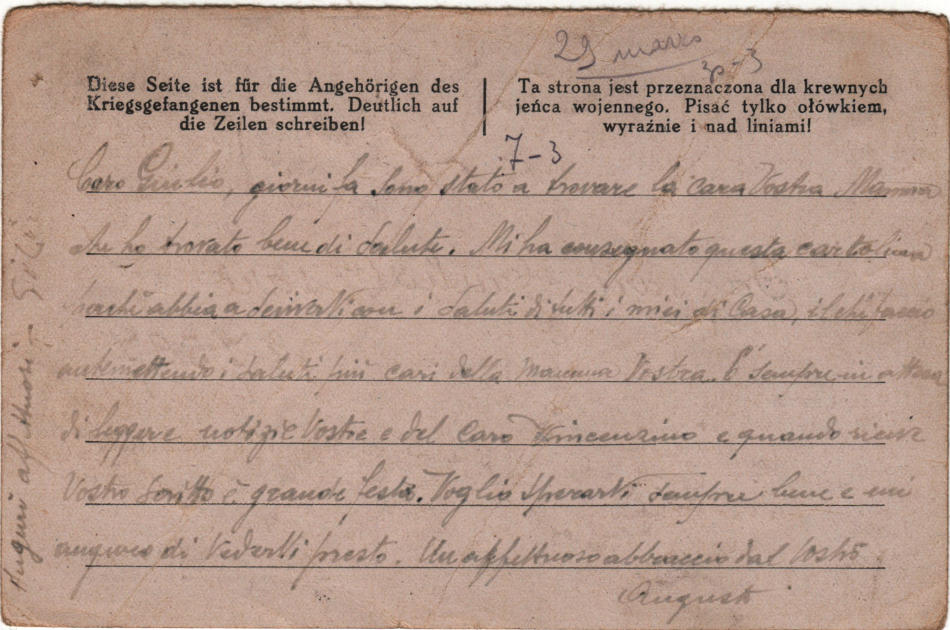 29 marzo
Diese Seite ist für die Angehörigen des
Kriegsgefangenen bestimmt. Deutlich auf
die Zeilen schreiben!
Ta strona jest przeznaczona dla krewnych
jeńca wojennego. Pisać tylko ołówkiem,
wyraźnie i nad liniami!
7-3
Caro Giulio, giorni fa sono stato a trovare la cara Vostra Mamma
che ho trovato bene di salute. Mi ha consegnato questa cartolina
perchè abbia a scriverti con i saluti di tutti i miei di Casa, il che faccio
antemettendo i saluti più cari della Mamma Vostra. È sempre in attesa
di leggere notizie Vostre e del Caro Vincenzino e quando riceve
Vostro scritto è grande festa. Voglio sperarti sempre bene e mi
auguro di Vederti presto. Un affettuoso abbraccio dal Vostro
Auguri aff